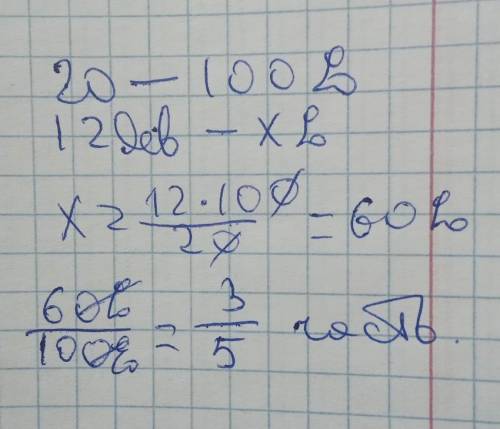 20 — 100 %
12 дев — x %
x = 12 · 100 / 20 = 60 %
60% / 100% = 3 / 5 часть.